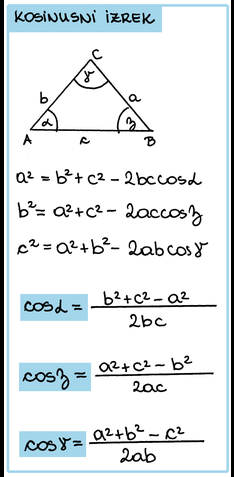 KOSINUSNI IZREK
C
γ
b a
α β
A c B
a² = b² + c² - 2bc cosα
b² = a² + c² - 2ac cosβ
c² = a² + b² - 2ab cosγ
cosα = (b² + c² - a²) / 2bc
cosβ = (a² + c² - b²) / 2ac
cosγ = (a² + b² - c²) / 2ab